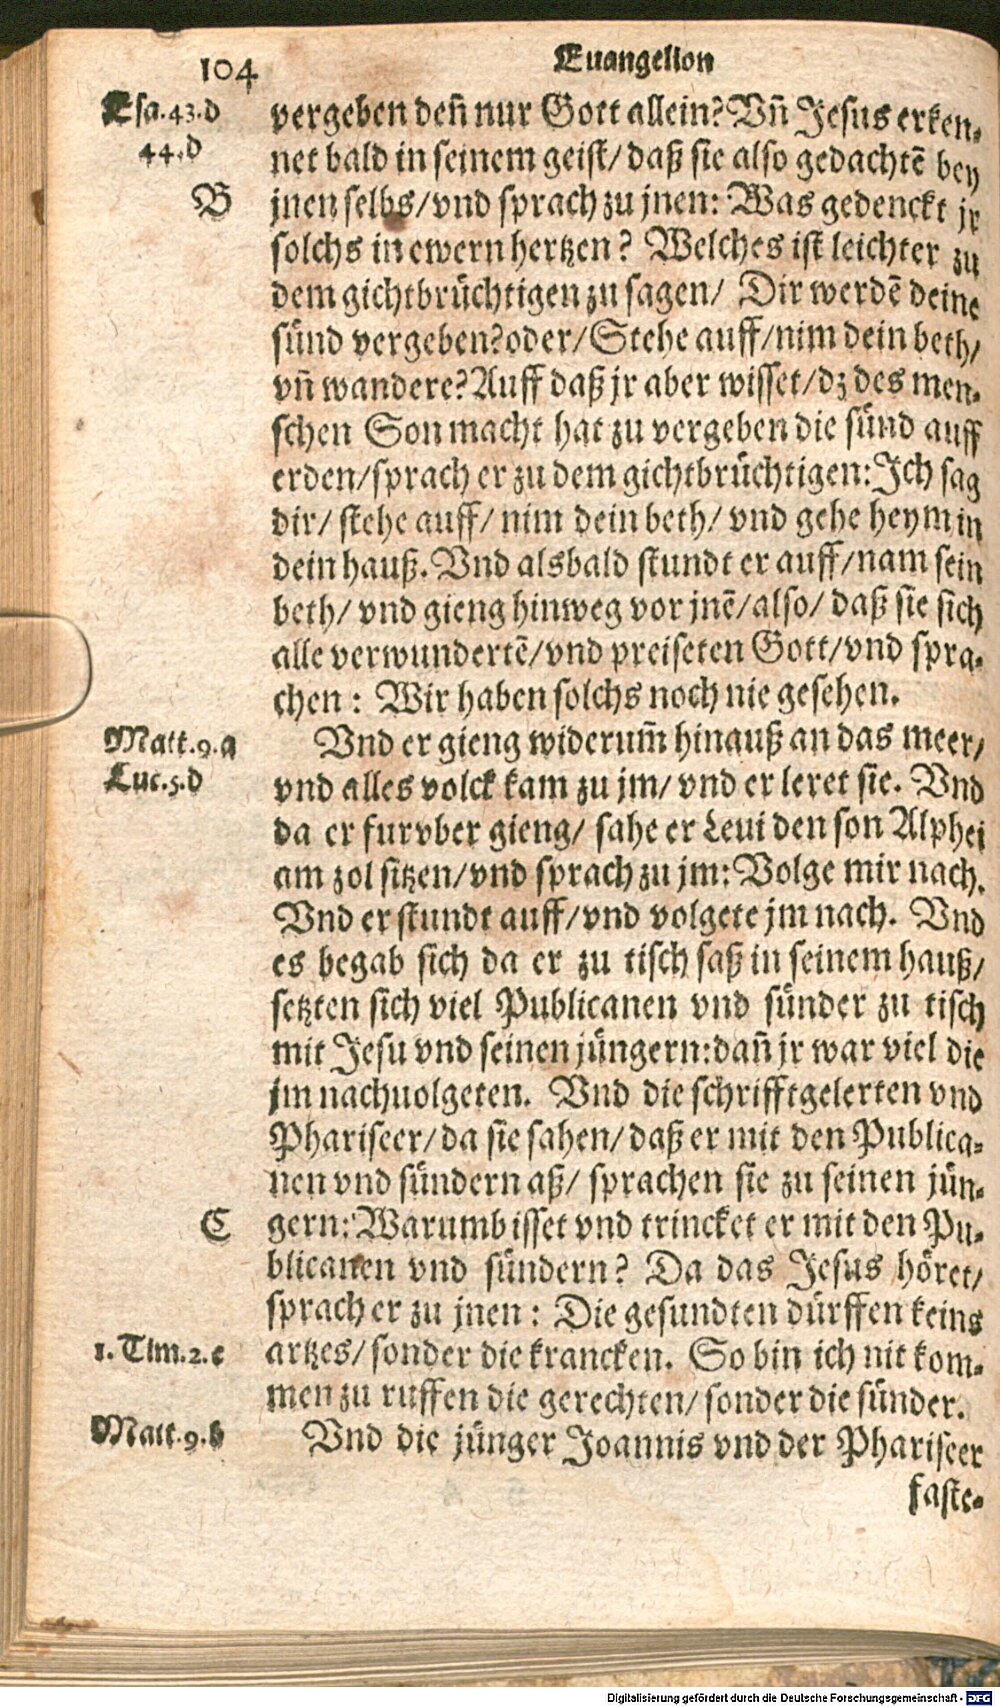 104
Euangelion
Esa.43.d
44.d
vergeben deñ nur Gott allein? Vñ Jesus erken-
net bald in seinem geist/ daß sie also gedachtē bey
B
jnen selbs/ vnd sprach zu jnen: Was gedenckt jr
solchs in ewern hertzen? Welches ist leichter zu
dem gichtbrüchtigen zu sagen/ Dir werdē deine
sünd vergeben? oder/ Stehe auff/ nim dein beth/
vñ wandere? Auff daß jr aber wisset/ dz des men-
schen Son macht hat zu vergeben die sünd auff
erden/ sprach er zu dem gichtbrüchtigen: Ich sag
dir/ stehe auff/ nim dein beth/ vnd gehe heym in
dein hauß. Vnd alsbald stundt er auff/ nam sein
beth/ vnd gieng hinweg vor jnē/ also/ daß sie sich
alle verwundertē/ vnd preiseten Gott/ vnd spra-
chen: Wir haben solchs noch nie gesehen.
Matt.9.a
Luc.5.d
Vnd er gieng widerum̄ hinauß an das meer/
vnd alles volck kam zu jm/ vnd er leret sie. Vnd
da er furvber gieng/ sahe er Leui den son Alphei
am zol sitzen/ vnd sprach zu jm: Volge mir nach.
Vnd er stundt auff/ vnd volgete jm nach. Vnd
es begab sich da er zu tisch saß in seinem hauß/
setzten sich viel Publicanen vnd sünder zu tisch
mit Jesu vnd seinen jüngern: dañ jr war viel die
jm nachuolgeten. Vnd die schrifftgelerten vnd
Phariseer/ da sie sahen/ daß er mit den Publica-
nen vnd sündern aß/ sprachen sie zu seinen jün-
C
gern: Warumb isset vnd trincket er mit den Pu-
blicanen vnd sündern? Da das Jesus höret/
sprach er zu jnen: Die gesundten dürffen keins
1. Tim.2.c
artzes/ sonder die krancken. So bin ich nit kom-
men zu ruffen die gerechten/ sonder die sünder.
Matt.9.b
Vnd die jünger Joannis vnd der Phariseer
faste-
Digitalisierung gefördert durch die Deutsche Forschungsgemeinschaft - DFG